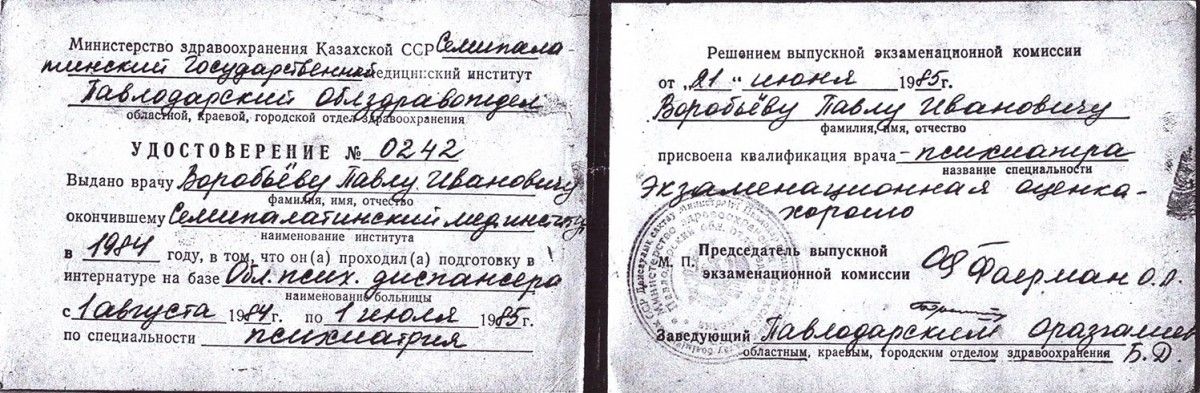 Министерство здравоохранения Казахской ССР Семипала
тинский Государственный медицинский институт
Павлодарский облздравотдел
областной, краевой, городской отдел здравоохранения
УДОСТОВЕРЕНИЕ № 0242
Выдано врачу Воробьёву Павлу Ивановичу
фамилия, имя, отчество
окончившему Семипалатинский мединститут
наименование института
в 1984 году, в том, что он(а) проходил(а) подготовку в
интернатуре на базе Обл. псих. диспансера
наименование больницы
с 1 августа 1984г. по 1 июля 1985г.
по специальности психиатрия
Решением выпускной экзаменационной комиссии
от „21" июня 1985г.
Воробьёву Павлу Ивановичу
фамилия, имя, отчество
присвоена квалификация врача - психиатра
название специальности
Экзаменационная оценка -
хорошо
М. П. Председатель выпускной
экзаменационной комиссии Фаерман О.А.
Заведующий Павлодарским
областным, краевым, городским отделом здравоохранения Б.Д.